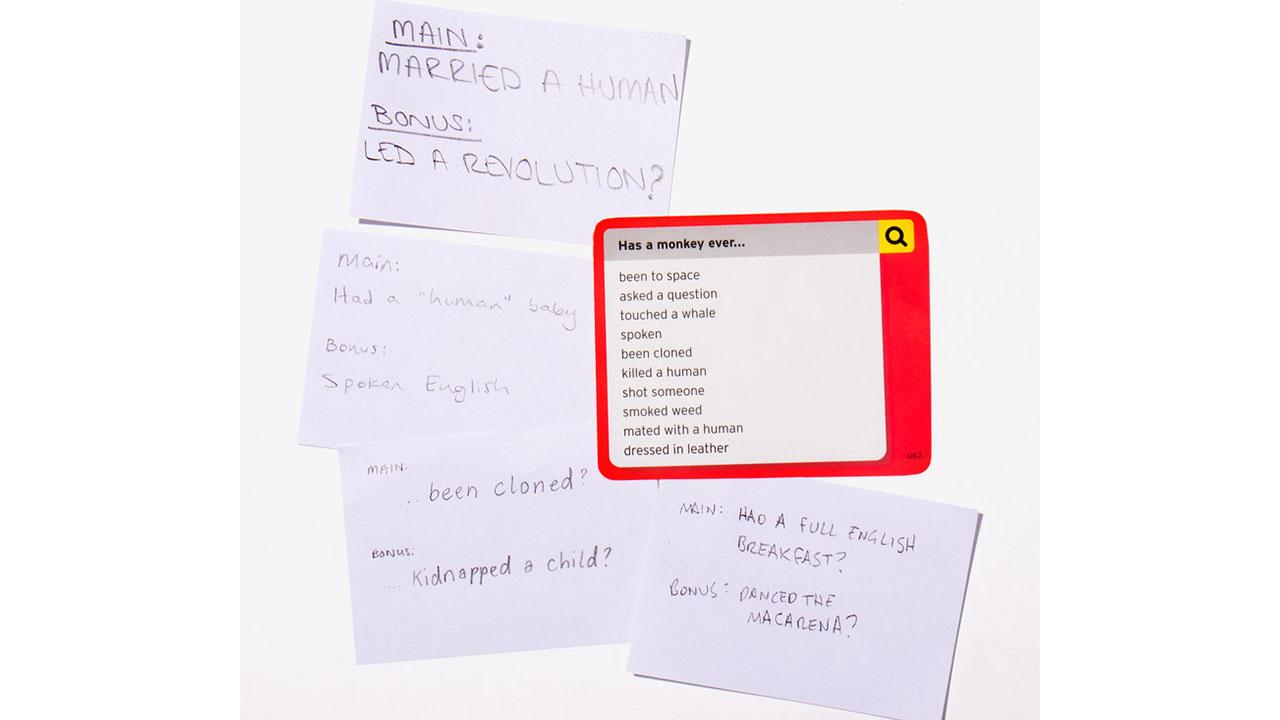 MAIN:
MARRIED A HUMAN
BONUS:
LED A REVOLUTION?
Main:
Had a "human" baby
Bonus:
Spoken English
Has a monkey ever...
been to space
asked a question
touched a whale
spoken
been cloned
killed a human
shot someone
smoked weed
mated with a human
dressed in leather
UK2
MAIN:
...been cloned?
BONUS:
...kidnapped a child?
MAIN: HAD A FULL ENGLISH
BREAKFAST?
BONUS: DANCED THE
MACARENA?